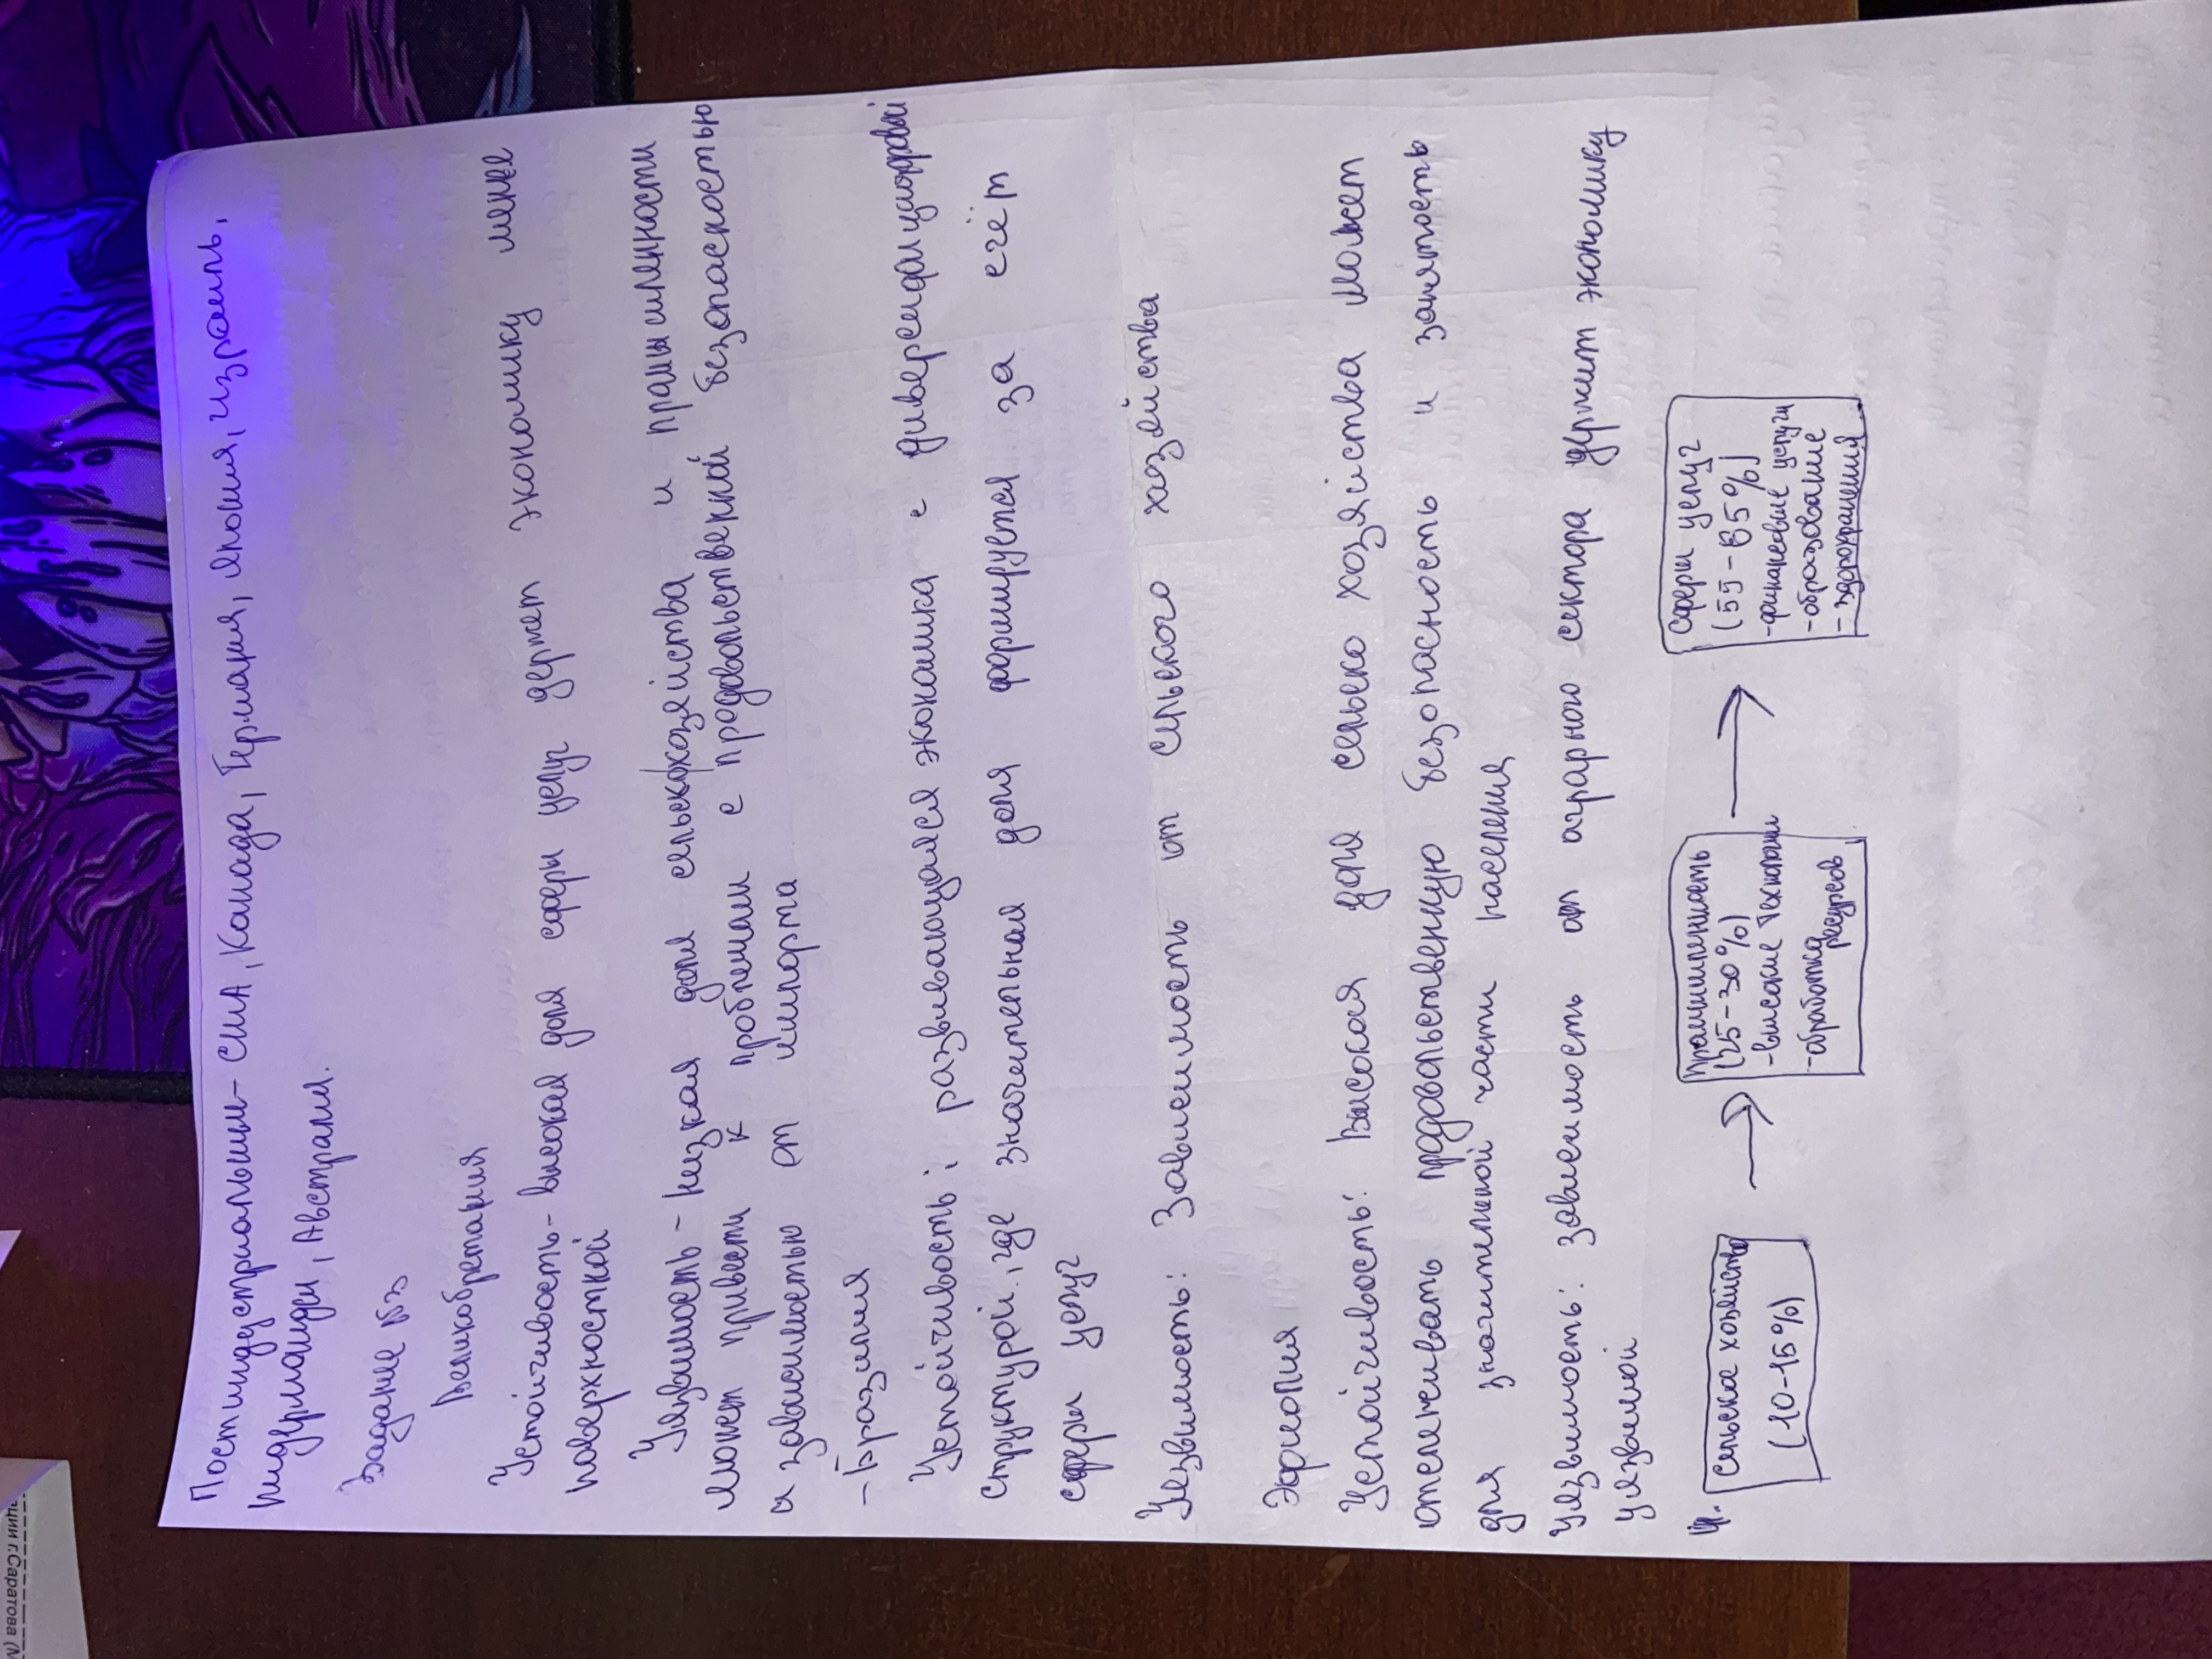 Постиндустриальные - США, Канада, Германия, Япония, израиль,
Нидерланды, Австралия.
Задание №3
Великобретания
Устойчивость - высокая доля сферы услуг держет экономику менее
поверхностной
Уязвимость - низкая доля сельскохозяйства и промышленности
может привести к проблемам с продовольственной безопасностью
и зависимостью от импорта
- Бразилия
Устойчивость: развивающаяся экономика с диверсифицированой
структурой, где значительная доля формируется за счёт
сферы услуг
Уязвимость: Зависимость от сельского хозяйства
Эфиопия
Устойчивость: Высокая доля сельско хозяйства может
продовольственную безопасность и занятость
для значительной части населения
уязвимость: зависимость от аграрного сектора держит экономику
уязвимой
4.
Сельска хозяйство
(10-15%)
Промышленность
(25-30%)
-высокие технологии
-обработка
ресурсов
Сферы услуг
(55-65%)
-финансовые услуги
-образование
-здрохранения
ции г.Саратова (М